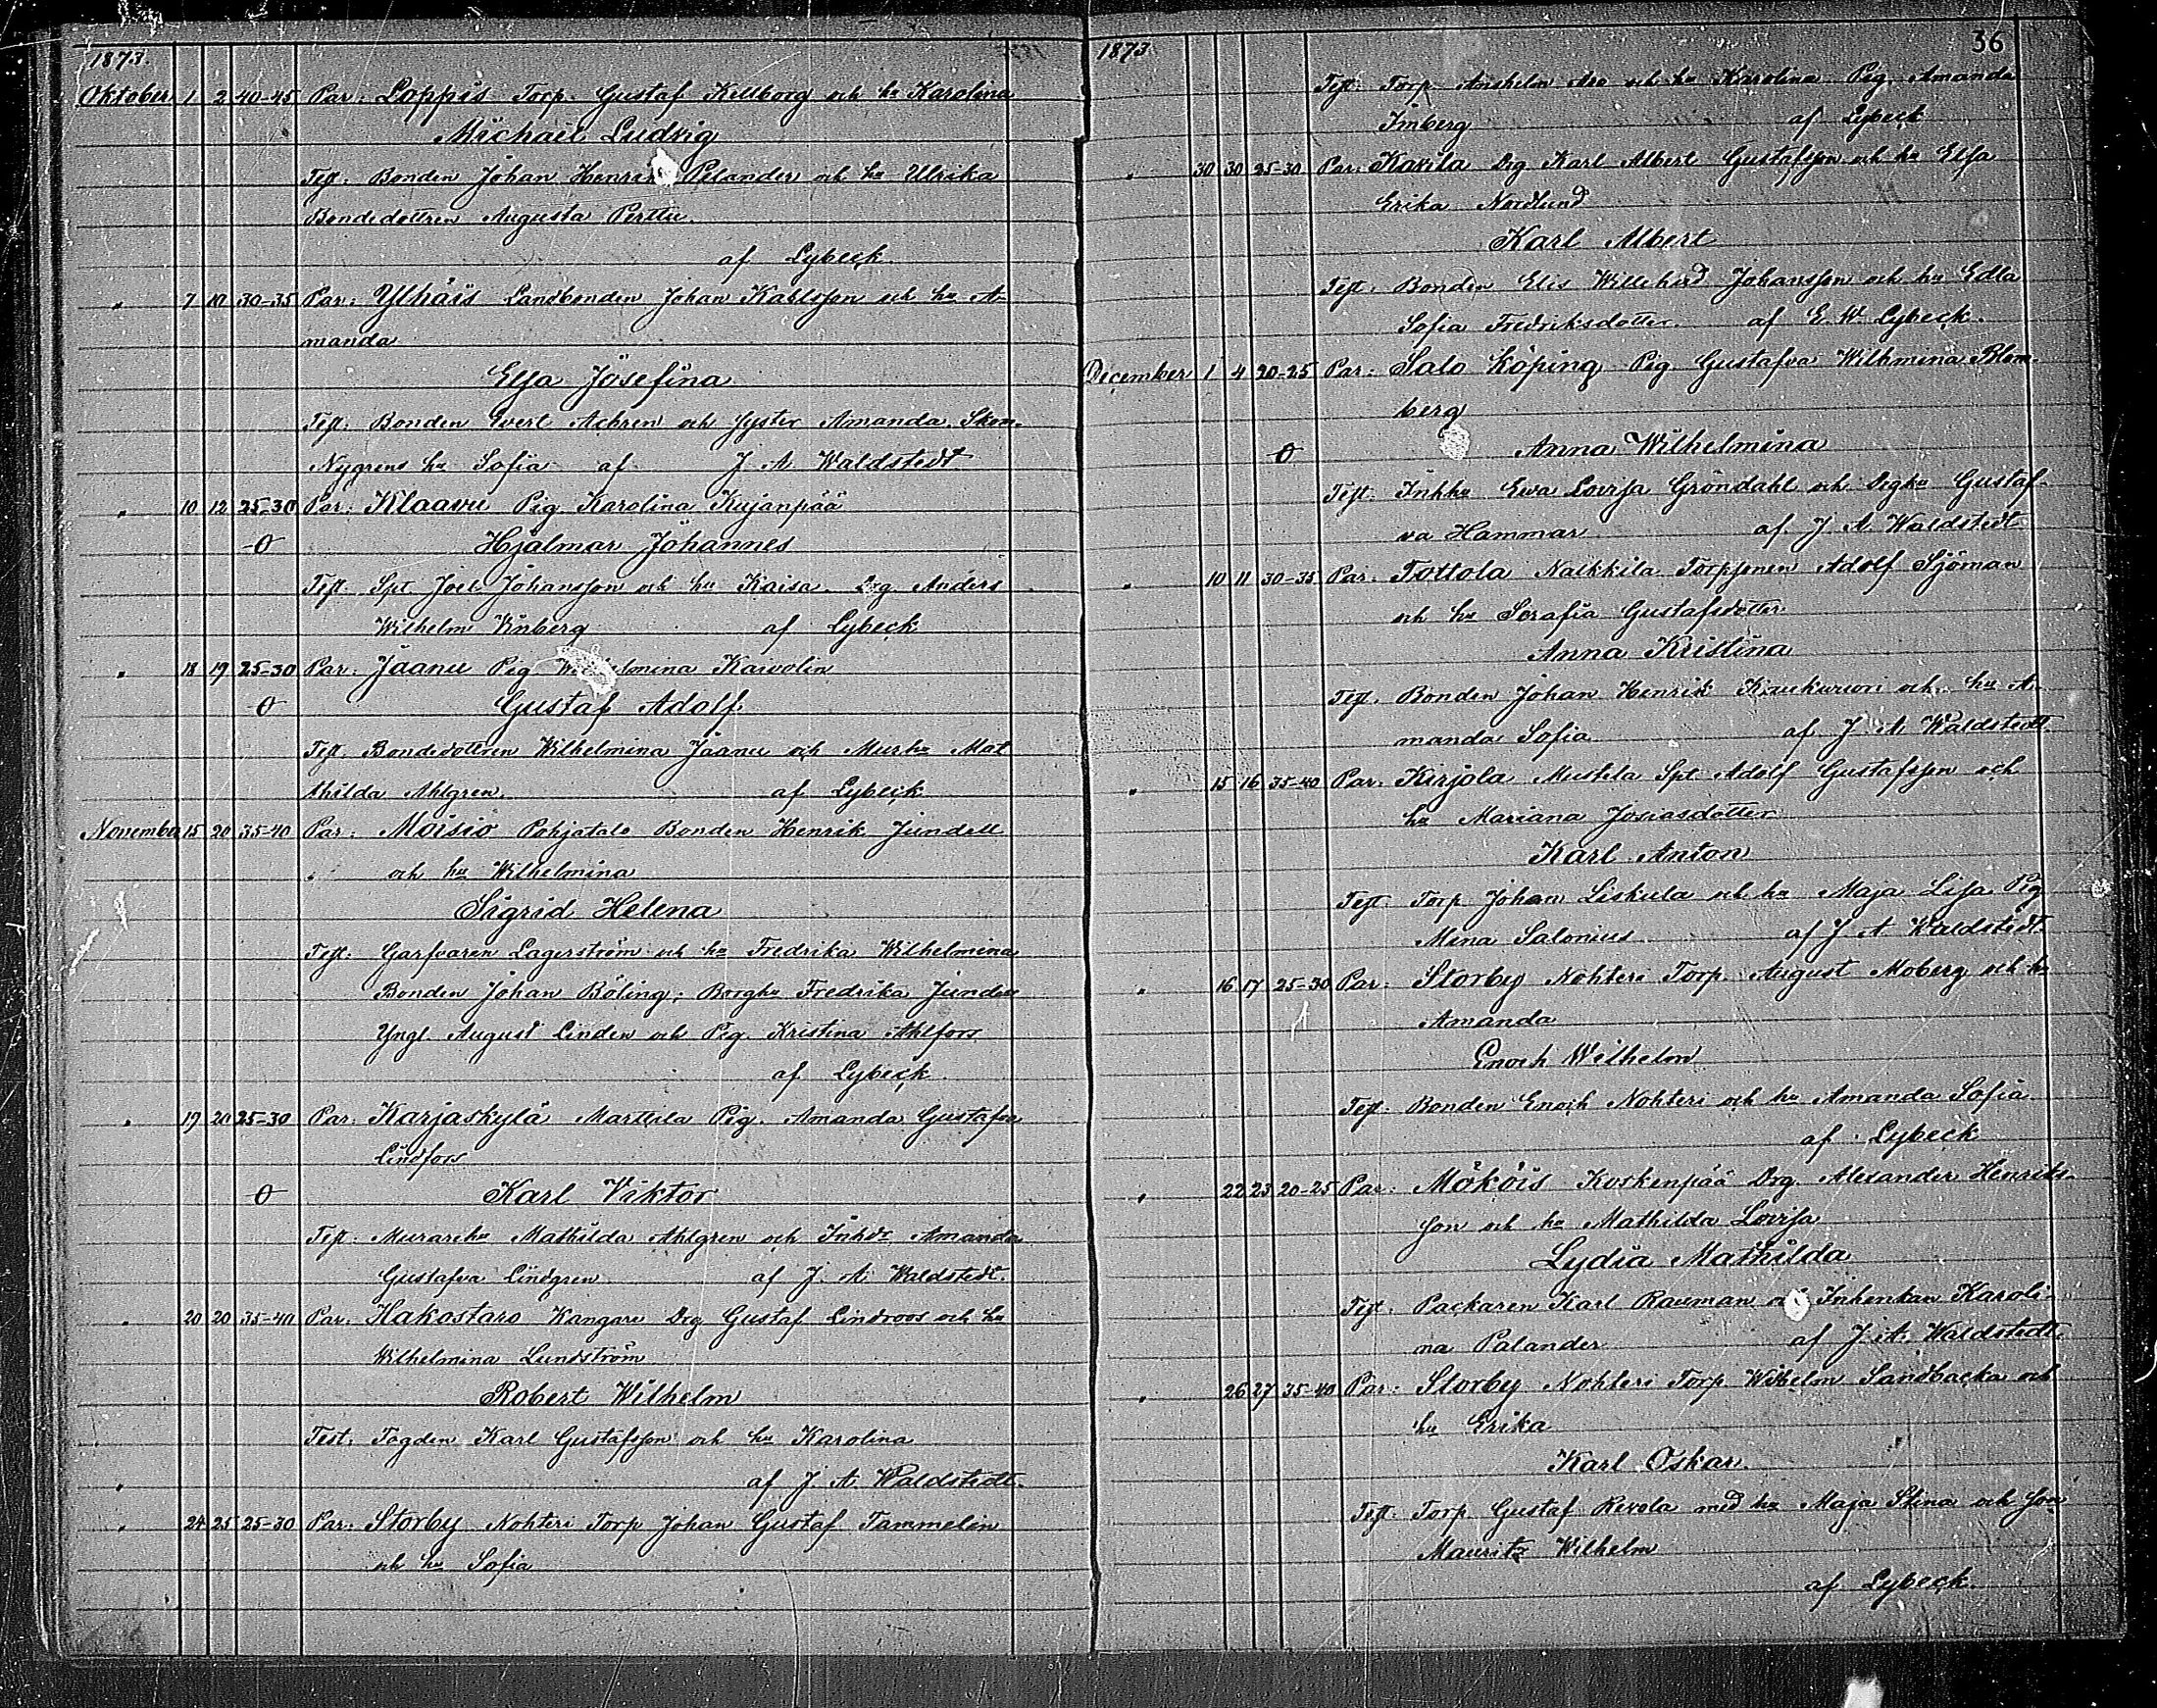 1873.
Oktober 1 2 40-45 Par: Loppis Torp. Gustaf Killborg och hu Karolina
Michael Ludvig
Test: Bonden Johan Henrik Pelander och hu Ullrika
Bondedottren Augusta Perttu
af Lybeck
" 7 10 30-35 Par: Ylhäis Landbonden Johan Karlsson och hu A-
manda
Elsa Josefina
Test: Bonden Evert och syster Amanda. Skom.
Nygrens hu Sofia af J A Waldstedt
" 10 12 25-30 Par: Klaavu Pig. Karolina Kujanpää
O Hjalmar Johannes
Test: Spt. Joel Johansson och hu Kaisa. Drg. Anders
Wilhelm Vinberg af Lybeck
" 18 19 25-30 Par: Jäanu Pig. Karvolin
O Gustaf Adolf
Test. Bondedottren Wilhelmina Jäanu och Murhu Mat
thilda Ahlgren af Lybeck
November 15 20 35-40 Par: Moisio Pohjatalo Bonden Henrik Jundell
och hu Wilhelmina
Sigrid Helena
Test: Garfvaren Lagerström och hu Fredrika Wilhelmina
Bonden Johan Böling; Borghu Fredrika
Yngl. August Linden och Pig. Kristina Ahlfors
af Lybeck
" 19 20 25-30 Par: Karjaskylä Marttila Pig. Amanda Gustafva
Lindfors
O Karl Viktor
Test: Murarehu Mathilda Ahlgren och Inhdr Amanda
Gustafva Lindgren af J. A Waldstedt.
" 20 20 35-40 Par: Hakostaro Kangare Drg Gustaf Lindroos och hu
Wilhelmina Lundström
Robert Wilhelm
Test: Karl Gustafsson och hu Karolina
" af J. A. Waldstedt.
" 24 25 25-30 Par: Storby Nohteri Torp Johan Gustaf Tammelin
och hu Sofia
1873 36
Test: Torp. Anshelm Aro och hu Karolina Pig. Amanda
Imberg af Lybeck
" 30 30 25-30 Par: Kavila Drg Karl Albert Gustafsson och hu Elsa
Erika Nordlund
Karl Albert
Test: Bonden Elis Willehad Johansson och hu Edla
Sofia Fredriksdotter. af E. W. Lybeck.
December 1 4 20-25 Par: Salo Köping Pig Gustafva Wilhmina Blom-
berg
O Anna Wilhelmina
Test. Inhhu Eva Lovisa Gröndahl och Drghu Gustaf-
va Hammar af. J. A. Waldstedt
" 10 11 30-35 Par. Tottola Naikkila Torpsonen Adolf Sjöman
och hu Serafia Gustafsdotter.
Anna Kristina
Test. Bonden Johan Henrik Kaukurivori och hu A-
manda Sofia af J A Waldstedt.
" 15 16 35-40 Par. Kirjola Mustila Spt. Adolf Gustafsson och
hu Mariana Josiasdotter
Karl Anton
Test: Torp Johan Liskula och hu Maja Lisa. Pig
Mina Salonius af J A Waldstedt.
" 16 17 25-30 Par: Storby Nohteri Torp. August Moberg och hu
Amanda
Enoch Wilhelm
Test: Bonden Enoch Nohteri och hu Amanda Sofia.
af Lybeck
" 22 23 20-25 Par: Mököis Koskenpää Drg. Alexander Henriks-
son och hu Mathilda Lovisa
Lydia Mathilda
Test: Packaren Karl Rauman Inhenkan Karoli-
na Palander af J. A. Waldstedt.
" 26 27 35-40 Par: Storby Nohteri Torp Wilhelm Sandbacka och
hu Erika
Karl Oskar
Test: Torp. Gustaf Revola med hu Maja Stina och son
Mauritz Wilhelm
af Lybeck.